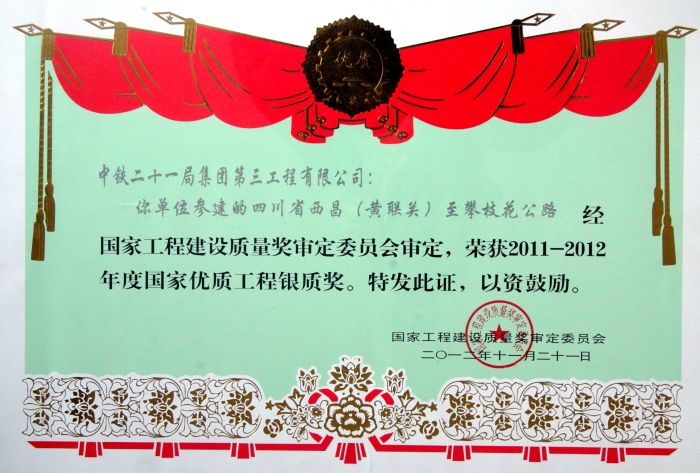 优质
中铁二十一局集团第三工程有限公司：
你单位参建的四川省西昌（黄联关）至攀枝花公路 经
国家工程建设质量奖审定委员会审定，荣获2011-2012
年度国家优质工程银质奖。特发此证，以资鼓励。
国家工程建设质量奖审定委员会
国家工程建设质量奖审定委员会
二〇一二年十一月二十一日